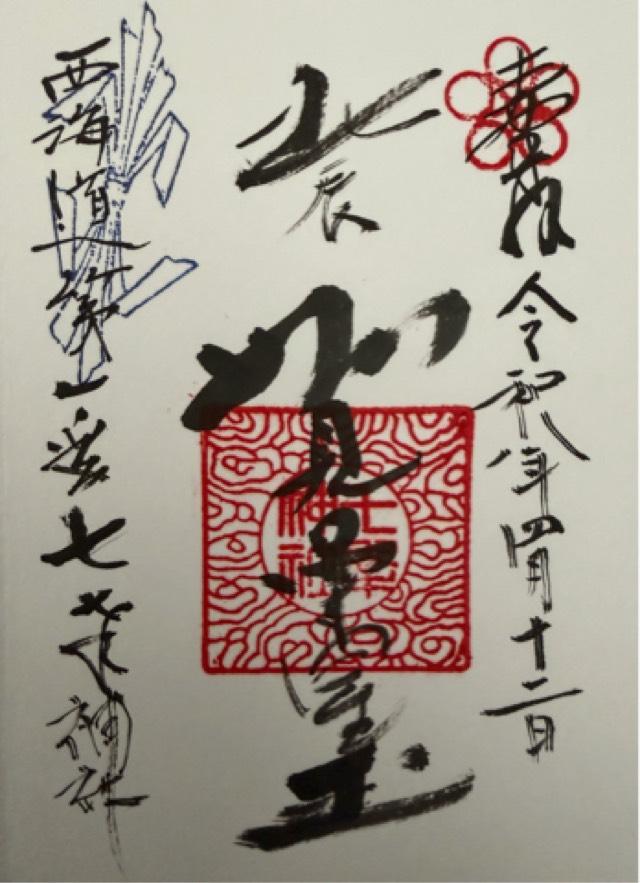 奉拝 令和八年四月十二日
北辰
妙見尊星王
西海道第一 七 神社
神社